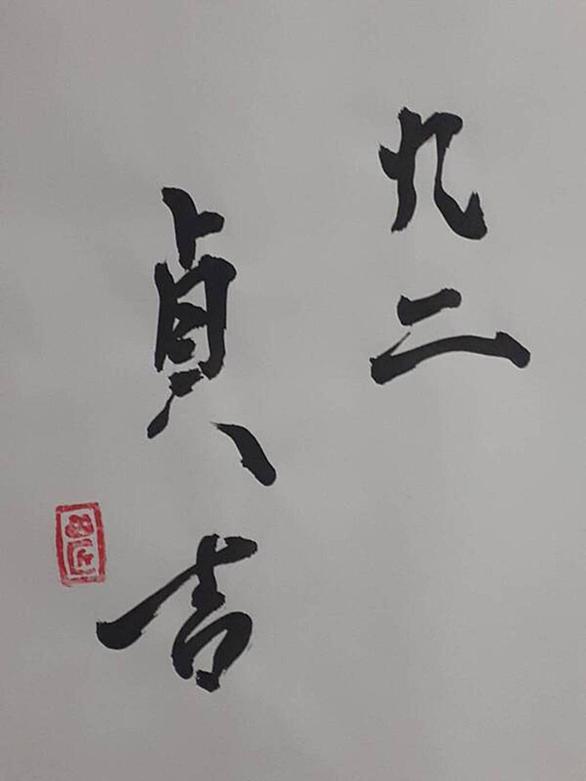 九二
貞吉